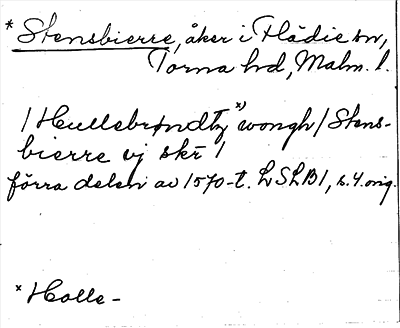 * Stensbierre, åker i Flädie sn,
Torna hd, Malm. l.
/ Hullebrøndtz *) wongh / Stens-
bierre vj skr /
förra delen av 1570-t. LSLB1, s. 4. orig.
* Holle-